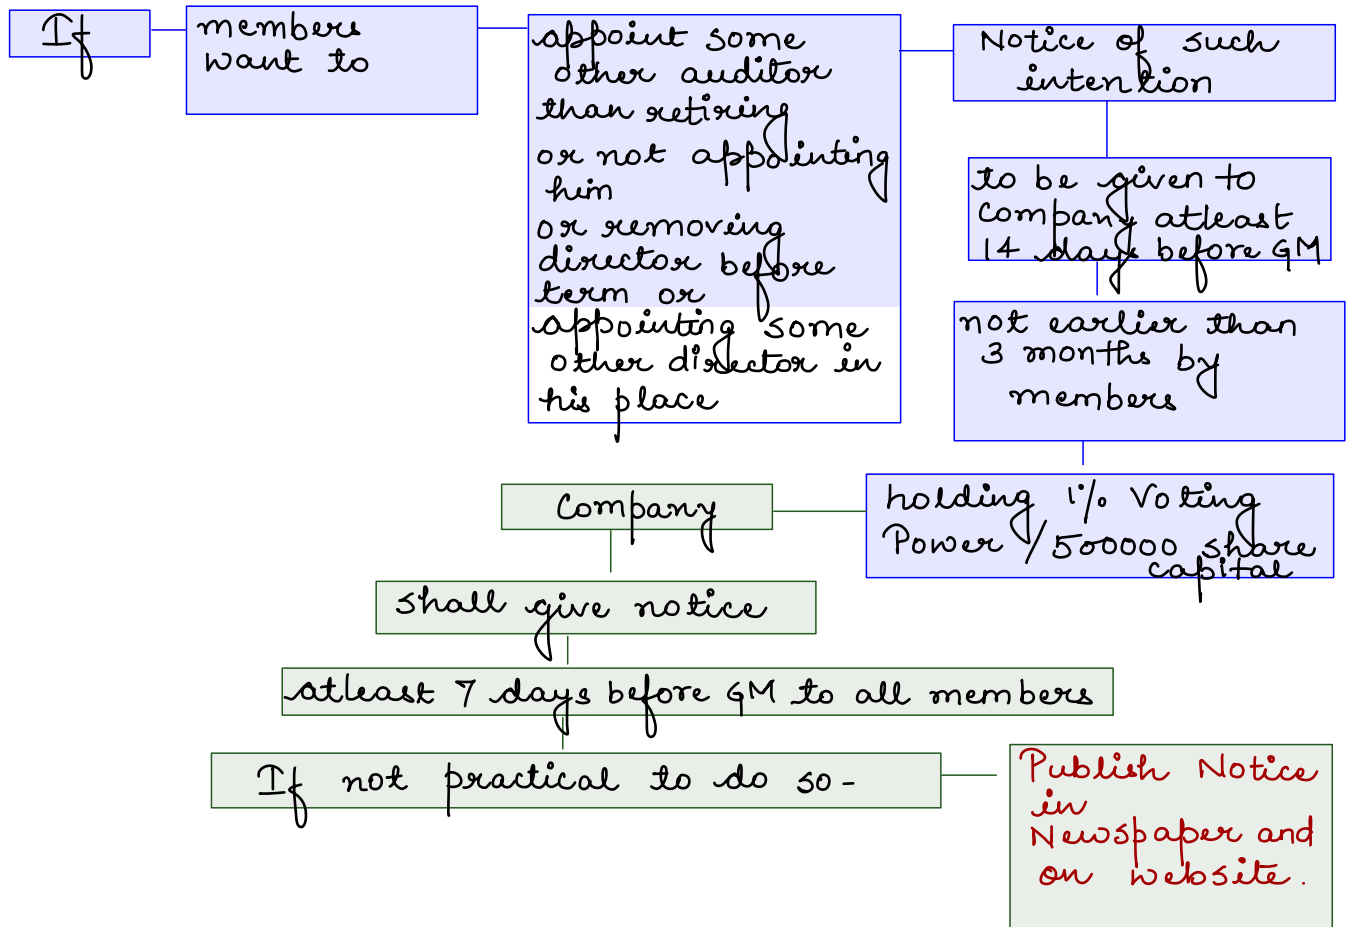 If
members
want to
appoint some
other auditor
than retiring
or not appointing
him
or removing
director before
term or
appointing some
other director in
his place
Notice of such
intention
to be given to
Company atleast
14 days before GM
not earlier than
3 months by
members
holding 1% Voting
Power / 500000 share
capital
Company
shall give notice
atleast 7 days before GM to all members
If not practical to do so-
Publish Notice
in
Newspaper and
on website.